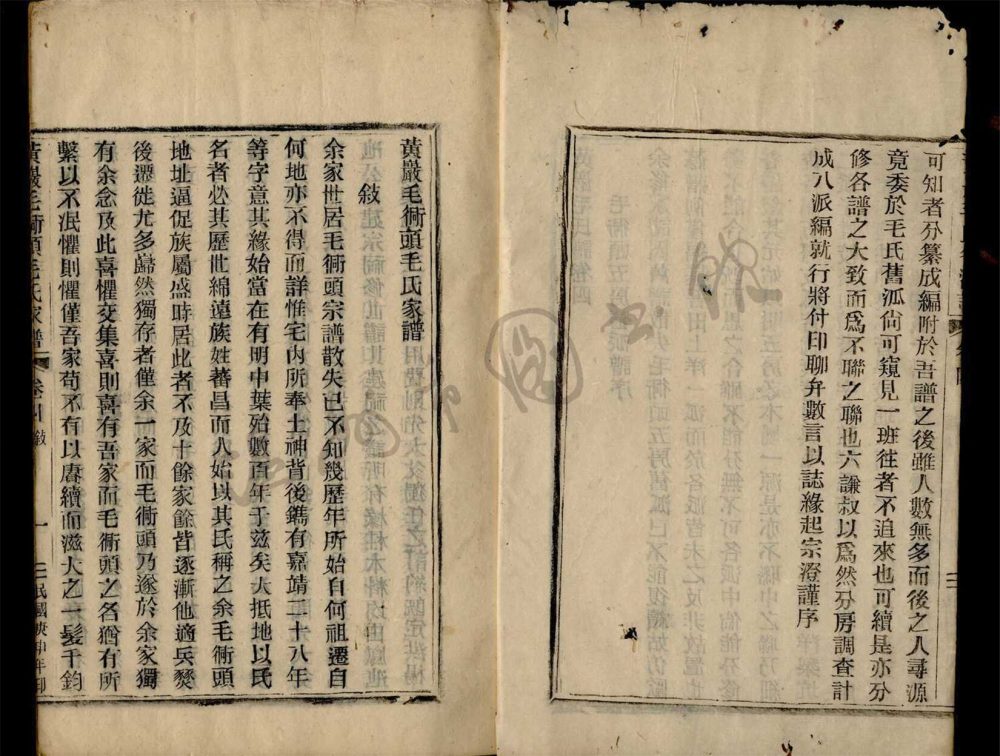 可知者分纂成編附於吾譜之後雖人數無多而後之人尋源
竟委於毛氏舊派尙可窺見一班往者不追來也可續是亦分
修各譜之大致而爲不聯之聯也六謙叔以爲然分房調查計
成八派編就行將付印聊弁數言以誌緣起宗澄謹序
黃巖毛衕頭毛氏家譜
敘
余家世居毛衕頭宗譜散失已不知幾歷年所始自何祖遷自
何地亦不得而詳惟宅內所奉土神背後鐫有嘉靖二十八年
等字意其緣始當在有明中葉殆數百年于兹矣大抵地以氏
名者必其歷世綿遠族姓蕃昌而人始以其氏稱之余毛衕頭
地址逼促族屬盛時居此者不及十餘家餘皆逐漸他適兵燹
後遷徙尤多巋然獨存者僅余一家而毛衕頭乃遂於余家獨
有余念及此喜懼交集喜則喜有吾家而毛衕頭之名猶有所
繫以不泯懼則懼僅吾家苟不有以賡續而滋大之一髮千鈞
黃巖毛衕頭毛氏家譜 卷 敘 一 民國庚申年印